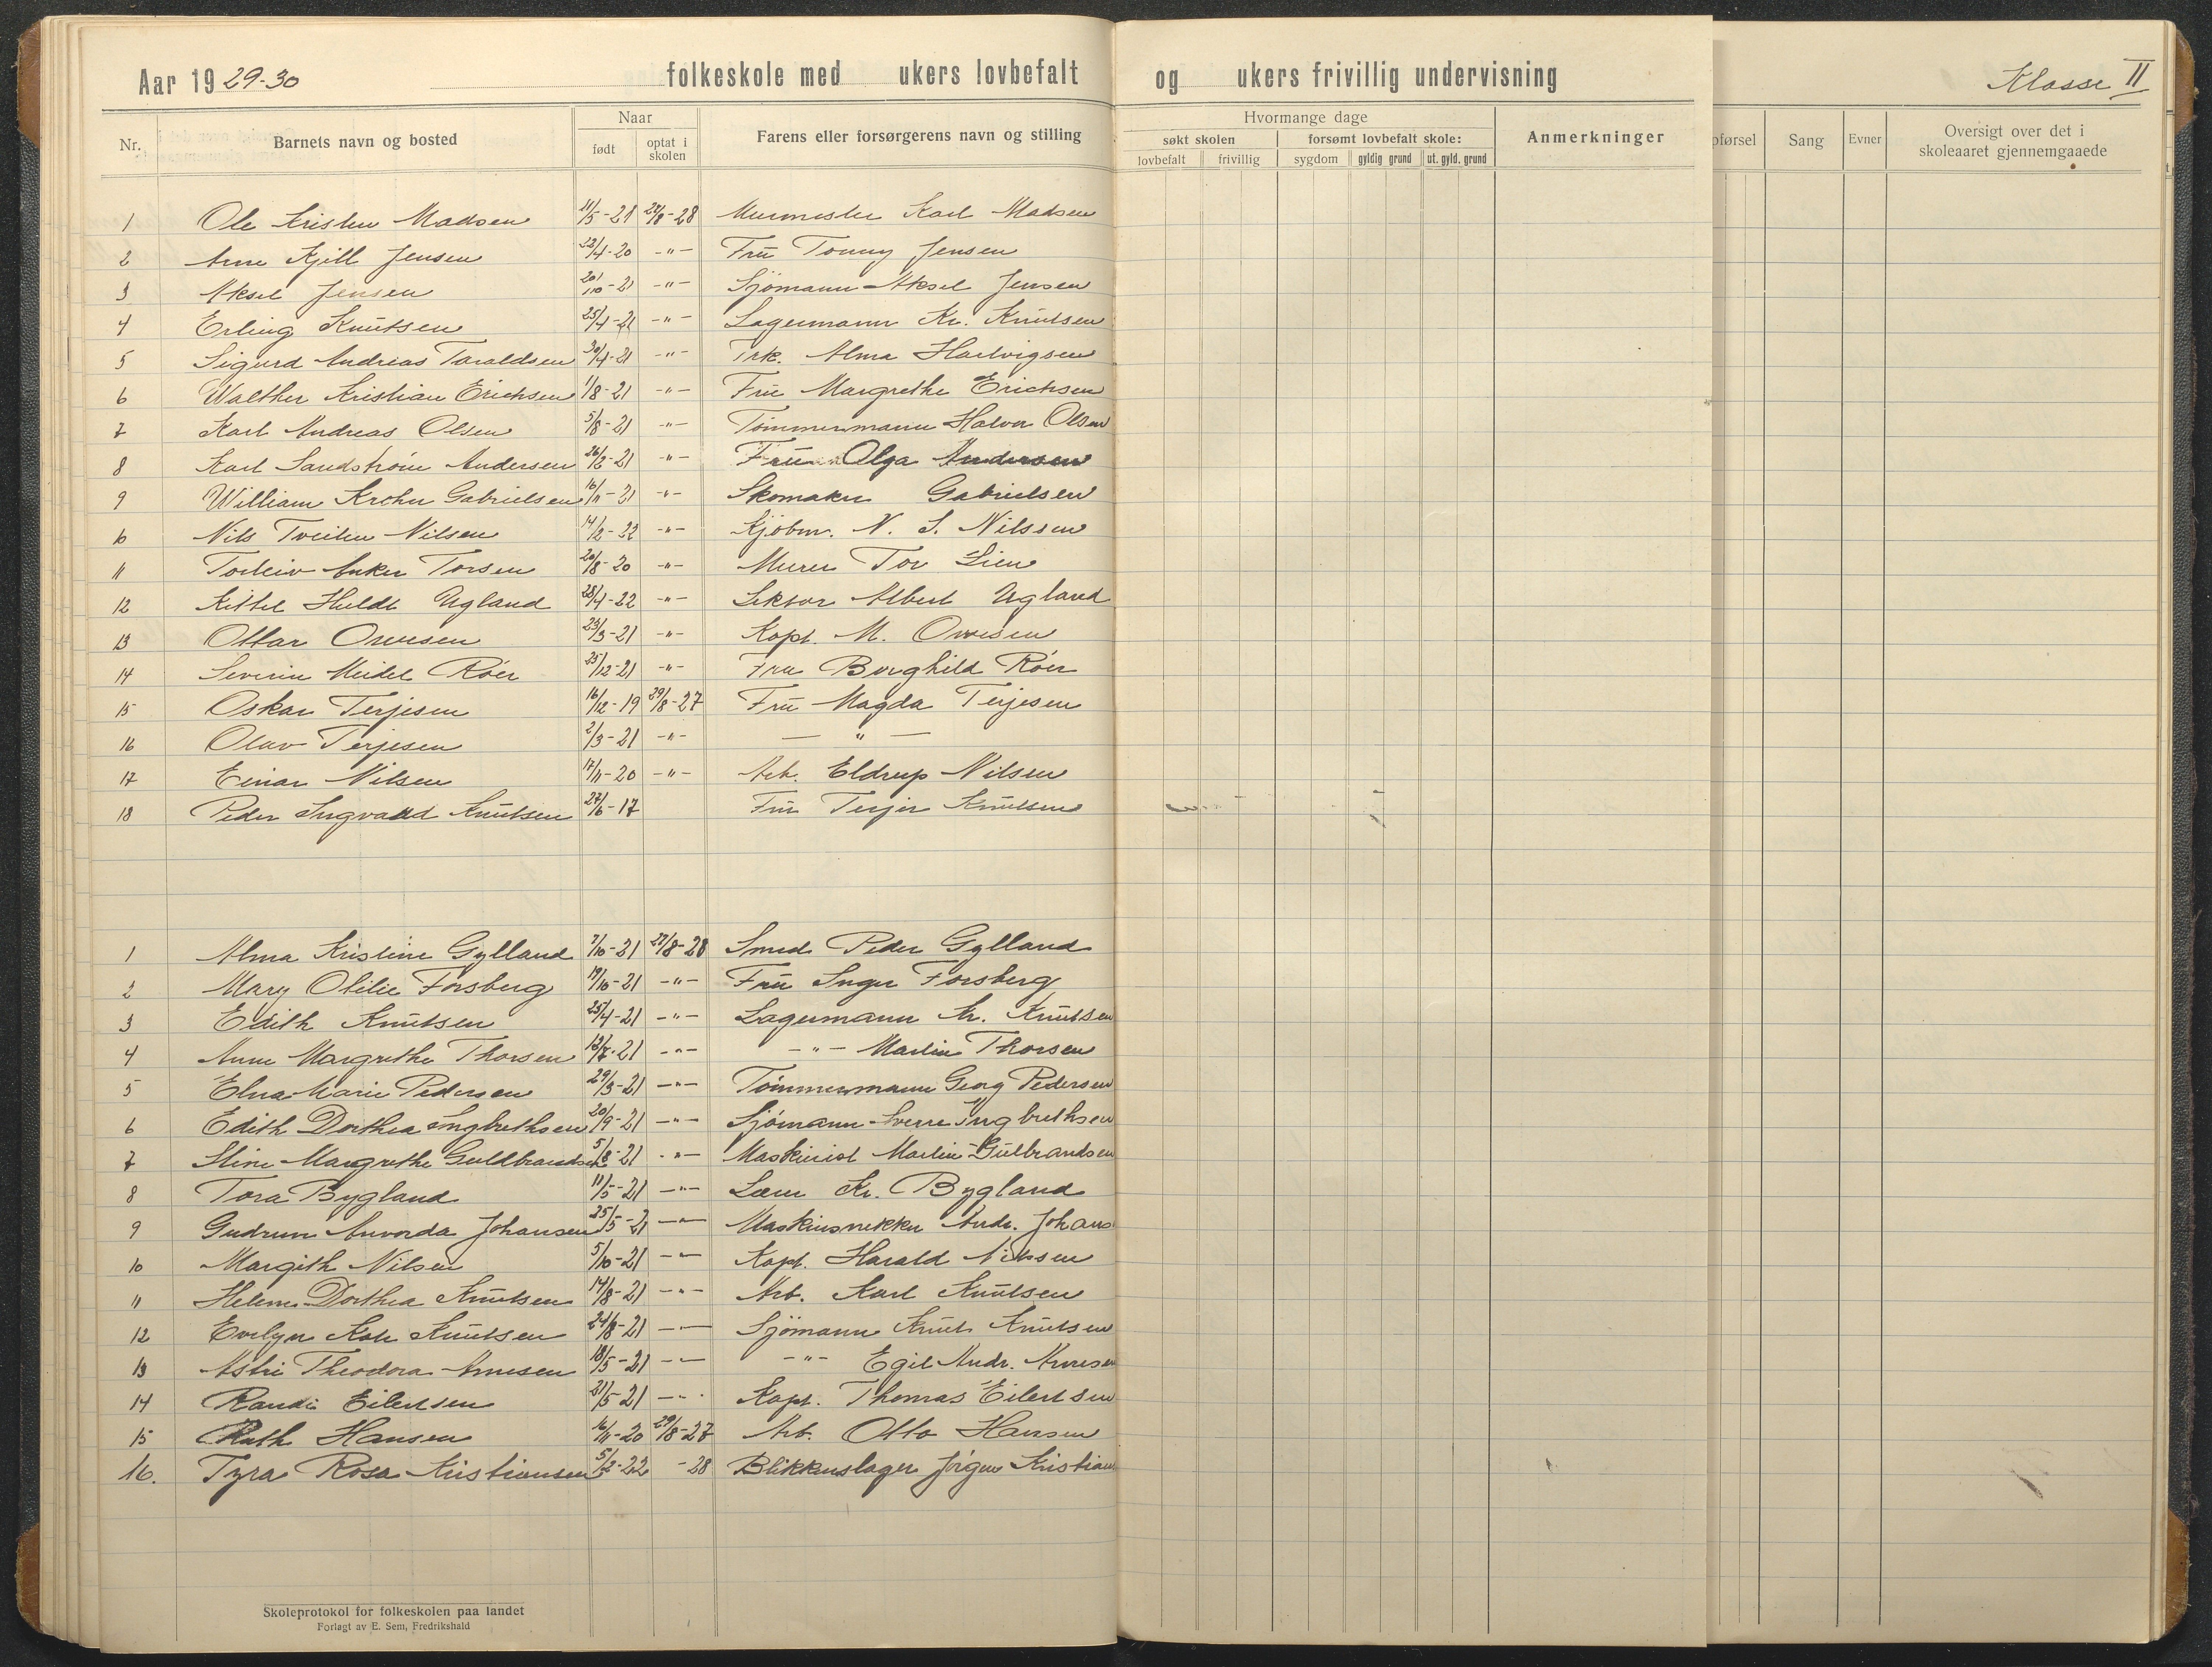 Aar 1929-30 folkeskole med ukers lovbefalt og ukers frivillig undervisning Klasse II
Nr. Barnets navn og bosted Naar født optat i skolen Farens eller forsørgerens navn og stilling Hvormange dage søkt skolen lovbefalt frivillig forsømt lovbefalt skole: sygdom gyldig grund ut. gyld. grund Anmerkninger Sang Evner Oversigt over det i skoleaaret gjennemgaaede
1 Ole Kristen Madsen 11/5-21 28 Murmester Karl Madsen
2 Arne Kjell Jensen 22/4-20 -"- Fru Tonny Jensen
3 Aksel Jensen 20/10-21 -"- Sjömann Aksel Jensen
4 Erling Knutsen 25/4-21 -"- Lagermann Kr. Knutsen
5 Sigurd Andreas Taraldsen 30/4-21 -"- Frk. Alma Hartvigsen
6 Walther Kristian Erichsen 1/8-21 -"- Fru Margrethe Erichsen
7 Karl Andreas Olsen 5/8-21 -"- Tömmermann Halvor Olsen
8 Karl Sandström Andersen 26/2-21 -"- Fru Olga Andersen
9 William Krohn Gabrielsen 16/11-21 -"- Skomaker Gabrielsen
10 Nils Tveiten Nilsen 14/2-22 -"- Kjöbm. N. S. Nilssen
11 Torleiv Anker Torsen 20/8-20 -"- Murer Tor Lien
12 Kittel Huldt Ugland 28/4-22 -"- Lektor Albert Ugland
13 Ottar 23/3-21 -"- Kapt. M.
14 Severin Meidel Röer 25/12-21 -"- Fru Borghild Röer
15 Oskar Terjesen 16/12-19 29/8-27 Fru Magda Terjesen
16 Olav Terjesen 2/3-21 -"- — " —
17 Einar Nilsen 17/11-20 -"- Arb. Eldrup Nilsen
18 Peder Ingvald Knutsen 27/6-17 Fru Terjer Knutsen
1 Alma Kristine Gylland 7/10-21 27/8-28 Smed Peder Gylland
2 Mary Otilie Forsberg 19/10-21 -"- Fru Inger Forsberg
3 Edith Knutsen 25/4-21 -"- Lagermann Kr. Knutsen
4 Anne Margrethe Thorsen 13/7-21 -"- -"- Martin Thorsen
5 Elna Marie Pedersen 29/3-21 -"- Tömmermann Georg Pedersen
6 Edith Dorthea Ingbrethsen 20/9-21 -"- Sjömann Sverre Ingbrethsen
7 Stine Margrethe Guldbrandsen 5/8-21 -"- Maskinist Martin Gulbrandsen
8 Tora Bygland 11/5-21 -"- Lærer Kr. Bygland
9 Gudrun Anvorda Johansen 25/5-21 -"- Maskinsnekker Andr. Johans
10 Margith Nilsen 5/10-21 -"- Kapt. Harald Nilssen
11 Helene Dorthea Knutsen 14/8-21 -"- Arb. Karl Knutsen
12 Evelyn Kate Knutsen 24/8-21 -"- Sjömann Knut Knutsen
13 Astri Theodora Arnesen 18/5-21 -"- -"- Egil Andr. Arnesen
14 Randi Eilertsen 21/5-21 -"- Kapt. Thomas Eilertsen
15 Ruth Hansen 16/11-20 29/8-27 Arb. Otto Hansen
16. Tyra Rosa Kristiansen 5/2-22 -28 Blikkenslager Jörgen Kristian
Skoleprotokol for folkeskolen paa landet
Forlagt av E. Sem, Fredrikshald